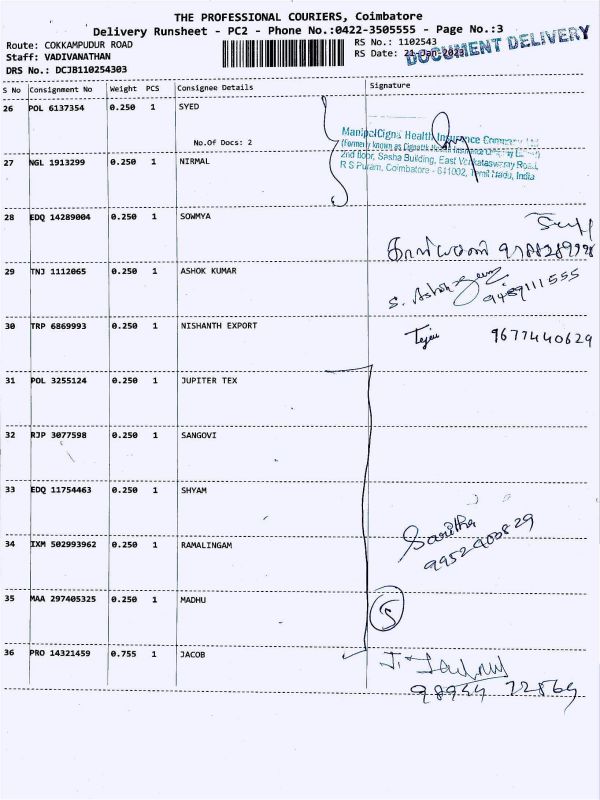 THE PROFESSIONAL COURIERS, Coimbatore
Delivery Runsheet - PC2 - Phone No.:0422-3505555 - Page No.:3
Route: COKKAMPUDUR ROAD RS No.: 1102543
Staff: VADIVANATHAN RS Date: 21-Jan-2023
DRS No.: DCJB110254303
DOCUMENT DELIVERY
S No Consignment No Weight PCS Consignee Details Signature
26 POL 6137354 0.250 1 SYED
No.Of Docs: 2
ManipalCigna Health Insurance
(formerly known as
2nd floor, Sasha Building, East Venkataswamy Road,
R S Puram, Coimbatore - 641002, Tamil Nadu, India
27 NGL 1913299 0.250 1 NIRMAL
28 EDQ 14289004 0.250 1 SOWMYA
29 TNJ 1112065 0.250 1 ASHOK KUMAR
9489111555
30 TRP 6869993 0.250 1 NISHANTH EXPORT
9677440629
31 POL 3255124 0.250 1 JUPITER TEX
32 RJP 3077598 0.250 1 SANGOVI
33 EDQ 11754463 0.250 1 SHYAM
Saritha
9952400829
34 IXM 502993962 0.250 1 RAMALINGAM
35 MAA 297405325 0.250 1 MADHU
5
36 PRO 14321459 0.755 1 JACOB
98944 72869